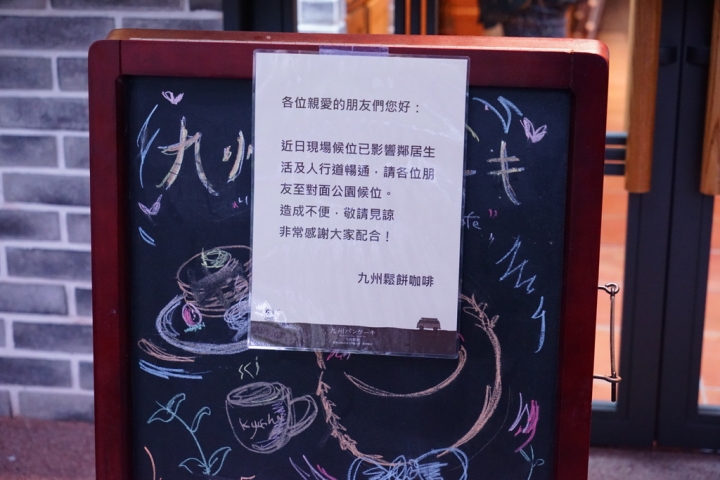 九州
キ
各位親愛的朋友們您好：
近日現場候位已影響鄰居生
活及人行道暢通，請各位朋
友至對面公園候位。
造成不便，敬請見諒
非常感謝大家配合！
九州鬆餅咖啡
九州パンケーキ